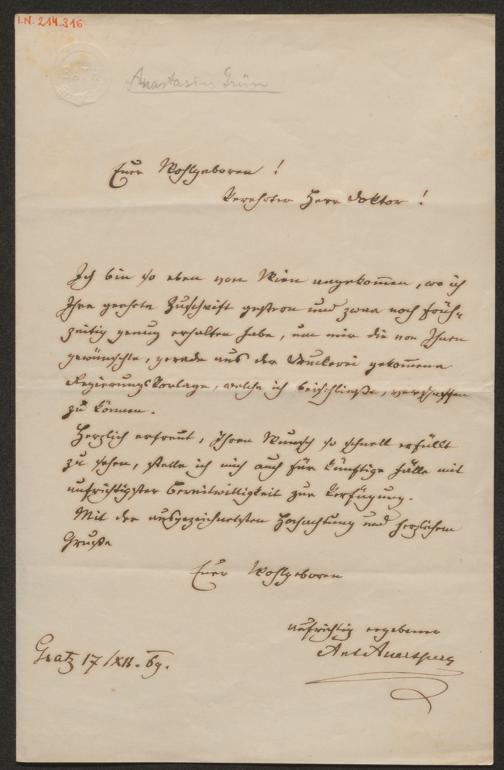 I.N. 214.316
BATH
Anastasius Grün
Euer Wohlgeboren!
Verehrter Herr Doktor!
Ich bin so eben von Wien angekommen, wo ich
Ihre geehrte Zuschrift gestern und zwar noch früh-
zeitig genug erhalten habe, um mir die von Ihnen
gewünschte, gerade aus der Druckerei gekommene
Regierungsvorlage, welche ich beischließe, verschaffen
zu können.
Herzlich erfreut, Ihren Wunsch so schnell erfüllt
zu sehen, stelle ich mich auch für künftige Fälle mit
aufrichtigster Bereitwilligkeit zur Verfügung.
Mit der ausgezeichnetsten Hochachtung und herzlichem
Gruße
Euer Wohlgeboren
aufrichtig ergebener
Ant Auersperg
Gratz 17/XII. 69.